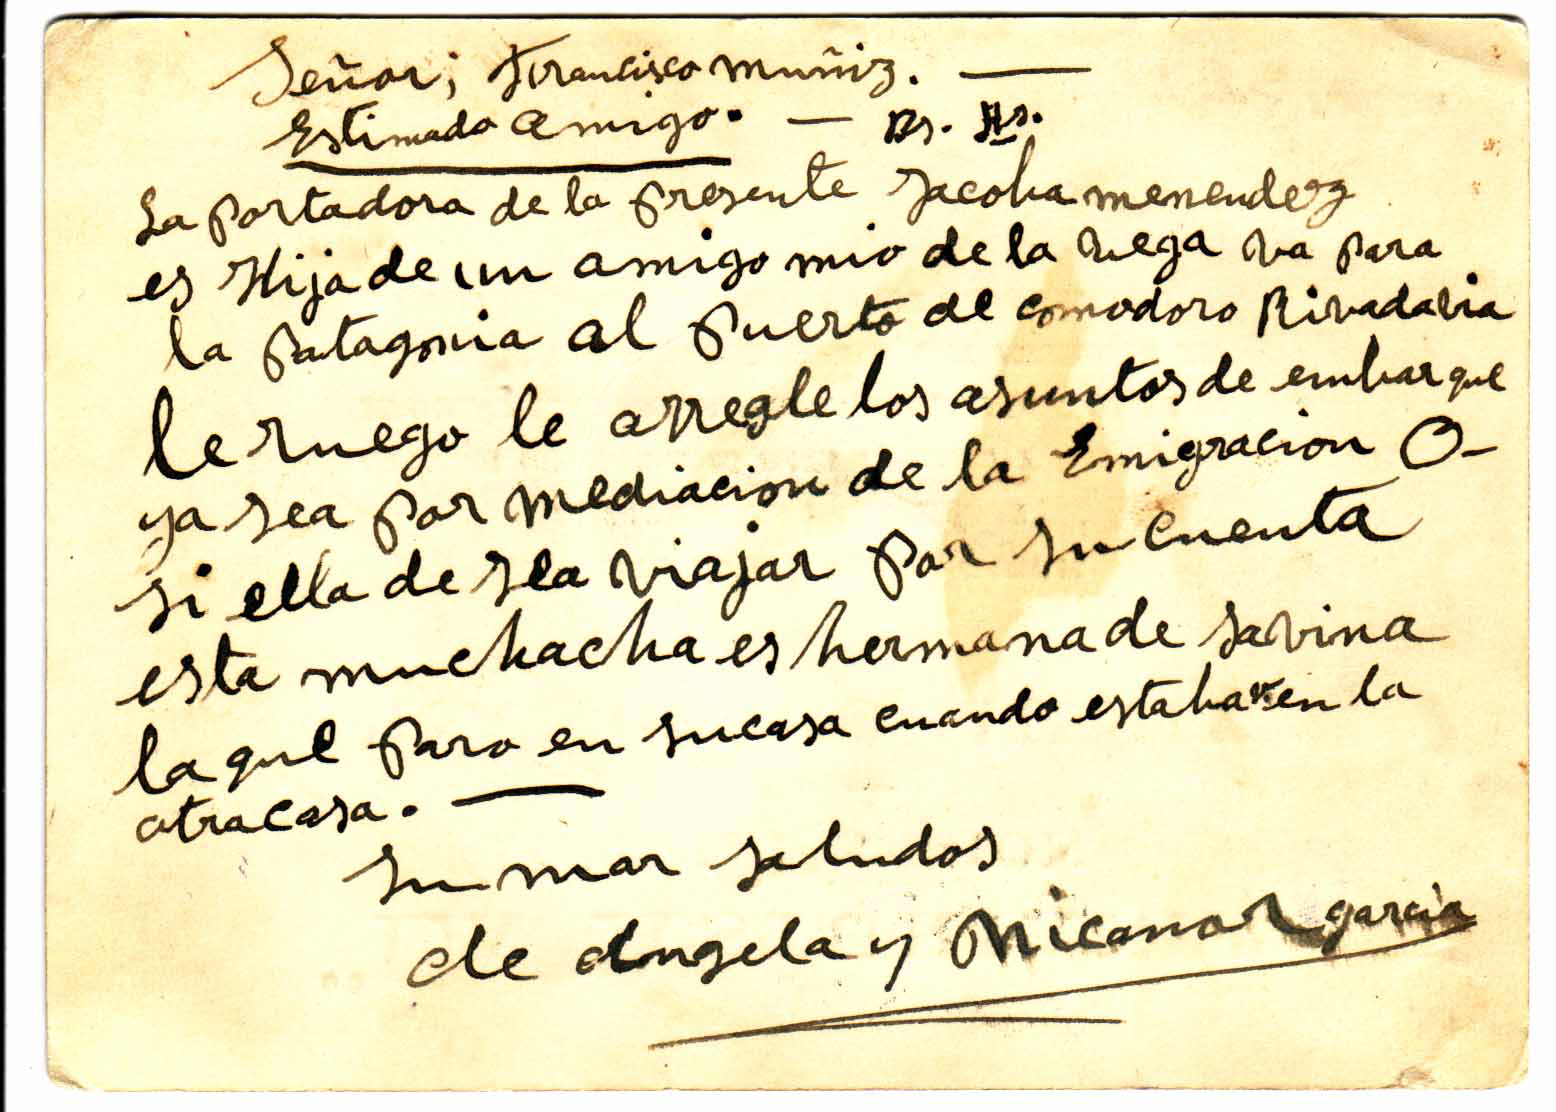 Señor; Francisco muñiz. —
Estimado amigo. — Bs. As.
La portadora de la presente Jacoba menendez
es Hija de un amigo mio de la vega va para
la patagonia al puerto de comodoro Rivadavia
le ruego le arregle los asuntos de embarque
ya sea por mediacion de la Emigracion O-
si ella desea viajar por su cuenta
esta muchacha es hermana de Savina
la que paro en su casa cuando estaba en la
otra casa. —
saludos
de Angela y Nicanor garcia